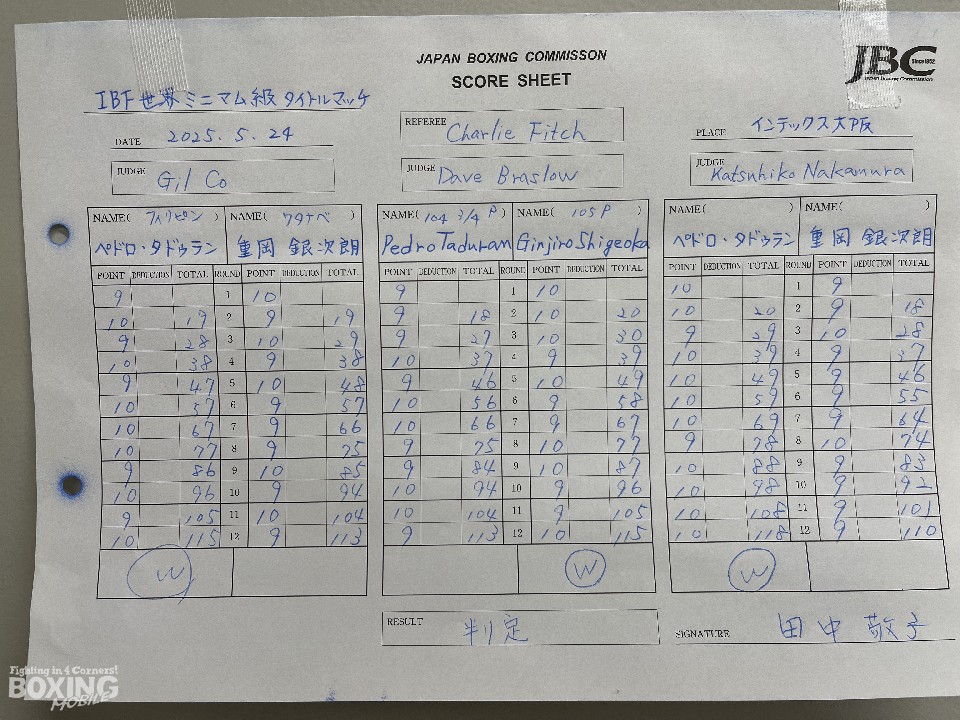 JAPAN BOXING COMMISSON
SCORE SHEET
JBC Since1952
IBF世界ミニマム級タイトルマッチ
DATE 2025. 5. 24
REFEREE Charlie Fitch
PLACE インテックス大阪
JUDGE Gil Co
JUDGE Dave Braslow
JUDGE Katsuhiko Nakamura
NAME( フィリピン ) NAME( ワタナベ ) NAME( 104 3/4 P ) NAME( 105P ) NAME( ) NAME( )
ペドロ・タドゥラン 重岡 銀次朗 Pedro Taduran Ginjiro Shigeoka ペドロ・タドゥラン 重岡 銀次朗
POINT DEDUCTION TOTAL ROUND POINT DEDUCTION TOTAL POINT DEDUCTION TOTAL ROUND POINT DEDUCTION TOTAL POINT DEDUCTION TOTAL ROUND POINT DEDUCTION TOTAL
9 1 10 9 1 10 10 1 9
10 19 2 9 19 9 18 2 10 20 10 20 2 9 18
9 28 3 10 29 9 27 3 10 30 9 29 3 10 28
10 38 4 9 38 10 37 4 9 39 10 39 4 9 37
9 47 5 10 48 9 46 5 10 49 10 49 5 9 46
10 57 6 9 57 10 56 6 9 58 10 59 6 9 55
10 67 7 9 66 10 66 7 9 67 10 69 7 9 64
10 77 8 9 75 9 75 8 10 77 9 78 8 10 74
9 86 9 10 85 9 84 9 10 87 10 88 9 9 83
10 96 10 9 94 10 94 10 9 96 10 98 10 9 92
9 105 11 10 104 10 104 11 9 105 10 108 11 9 101
10 115 12 9 113 9 113 12 10 115 10 118 12 9 110
W W W
RESULT 判定
SIGNATURE 田中 敬子
Fighting in 4 Corners!
BOXING
MOBILE